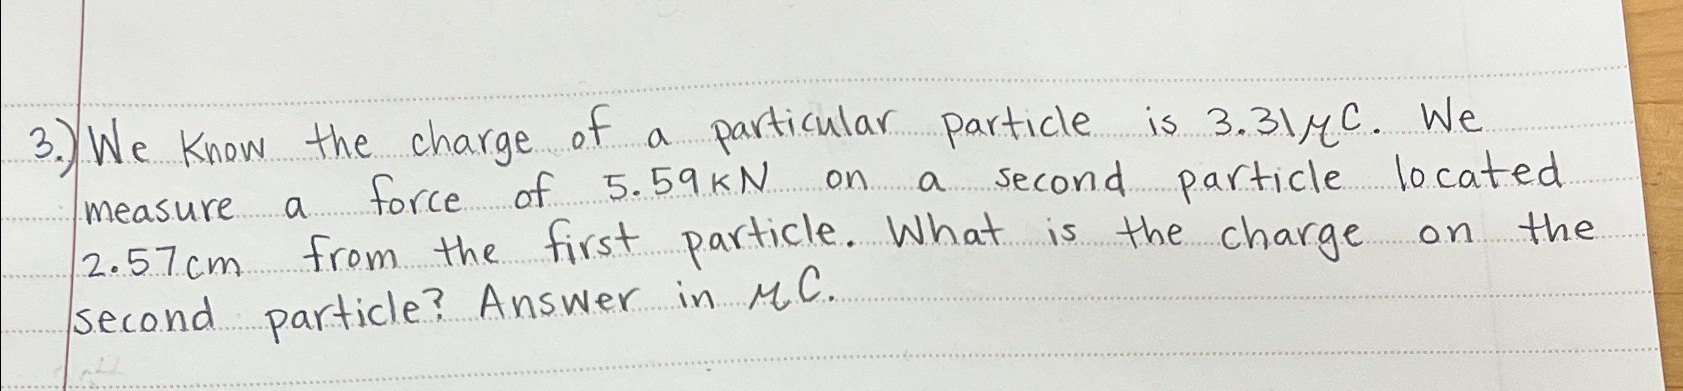 3.) We know the charge of a particular particle is 3.31μC. We
measure a force of 5.59kN on a second particle located
2.57cm from the first particle. What is the charge on the
second particle? Answer in μC.